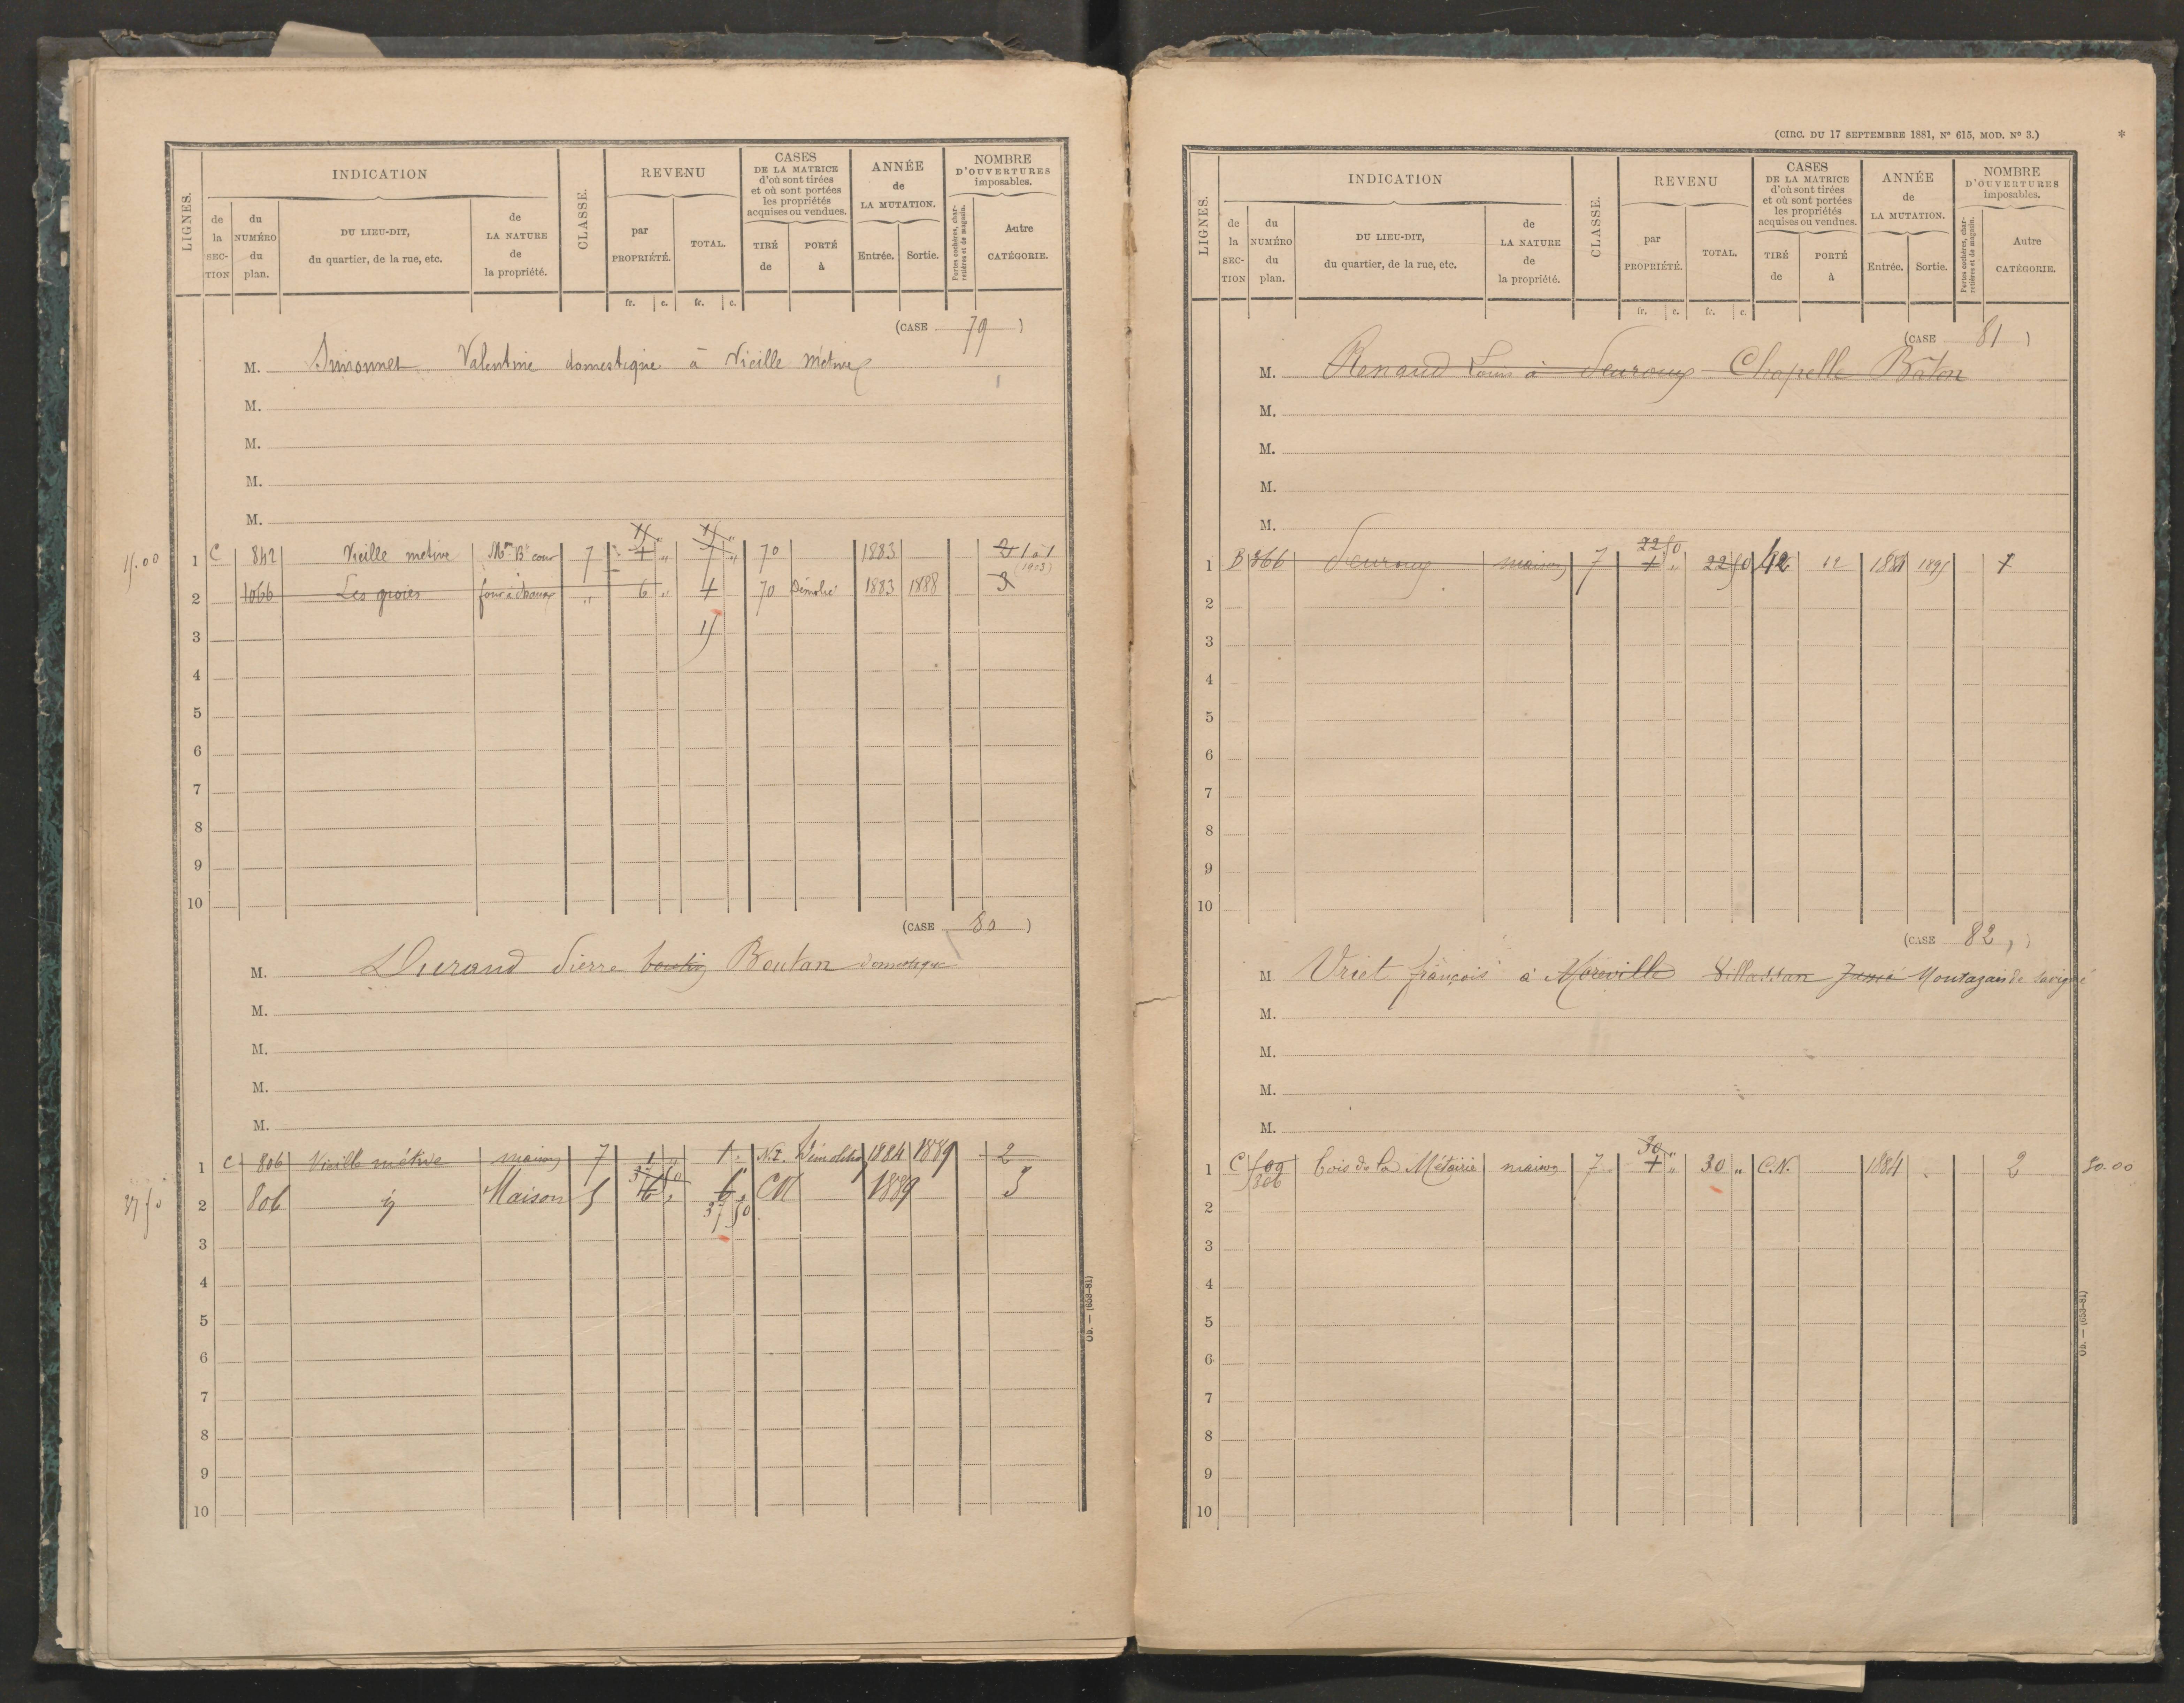 LIGNES.
INDICATION
de la SECTION
du NUMÉRO du plan.
DU LIEU-DIT, du quartier, de la rue, etc.
de LA NATURE de la propriété.
CLASSE.
REVENU
par PROPRIÉTÉ.
TOTAL.
fr. c. fr. c.
CASES DE LA MATRICE d'où sont tirées et où sont portées les propriétés acquises ou vendues.
TIRÉ de
PORTÉ à
ANNÉE de LA MUTATION.
Entrée. Sortie.
NOMBRE D'OUVERTURES imposables.
Portes cochères, charretières et de magasin.
Autre CATÉGORIE.
(CASE 79)
M. Simonnet Valentine domestique à Vieille Métive
M.
M.
M.
M.
15.00 1 C 842 Vieille metive Mon Bt cour 7 70 1883 (1903)
2 1066 Les groies four à chaux " 6 " 4 70 Démolie 1883 1888 3
3 15
4
5
6
7
8
9
10
(CASE 80)
M. Durand Pierre Boutan domestique
M.
M.
M.
M.
1 C 806 Vieille métive maison 7 1 " 1 " Démolition 1884 1889 2
37 50 2 806 Maison 5 6 " 6 " CN 1889 5
37 50
3
4
5
6
7
8
9
10
Ob. — (653-81)
(CIRC. DU 17 SEPTEMBRE 1881, N° 615, MOD. N° 3.) *
LIGNES.
INDICATION
de la SECTION
du NUMÉRO du plan.
DU LIEU-DIT, du quartier, de la rue, etc.
de LA NATURE de la propriété.
CLASSE.
REVENU
par PROPRIÉTÉ.
TOTAL.
fr. c. fr. c.
CASES DE LA MATRICE d'où sont tirées et où sont portées les propriétés acquises ou vendues.
TIRÉ de
PORTÉ à
ANNÉE de LA MUTATION.
Entrée. Sortie.
NOMBRE D'OUVERTURES imposables.
Portes cochères, charretières et de magasin.
Autre CATÉGORIE.
(CASE 81)
M. Renaud Louis à Chapelle Bâton
M.
M.
M.
M.
22 50
1 B 366 maison 7 22 50 12 1895
2
3
4
5
6
7
8
9
10
(CASE 82)
M Vriet françois à Moreville Villassan Montazais de Savigné
M.
M.
M.
M.
30 "
1 C 806 bois de la Métairie maison 7 30 " C.N. 1884 2 30.00
2
3
4
5
6
7
8
9
10
Ob. — (653-81)